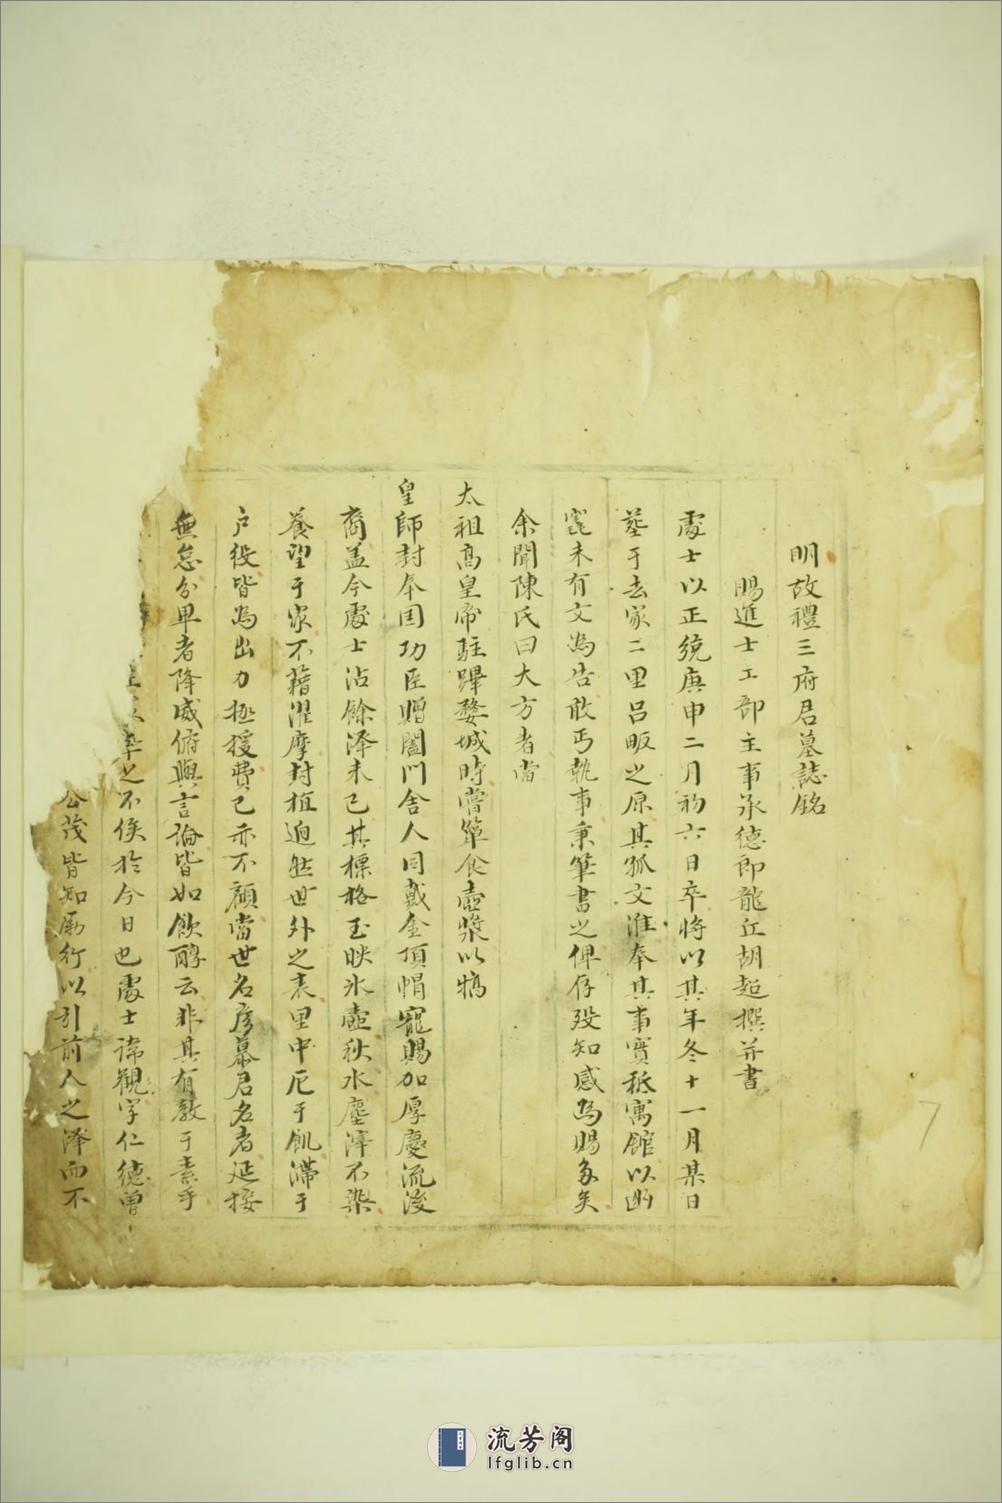 明故禮三府君墓誌銘
賜進士工部主事承德郎龍丘胡超撰并書
處士以正統庚申二月初六日卒將以其年冬十一月某日
葬于去家二里呂畈之原其孤文淮奉其事實秪寓館以幽
窀未有文為告敢丐執事秉筆書之俾存歿知感為賜多矣
余聞陳氏曰大方者當
太祖高皇帝駐蹕婺城時嘗簞食壺漿以犒
皇師封奉国功臣贈閤門舍人同戴金頂帽寵賜加厚慶流後
裔盖今處士沾餘澤未已其標格玉映氷壺秋水塵滓不染
養望于家不藉湼摩封植逈然世外之表里中厄于飢滯于
户役皆為出力拯援費己亦不顧當世名彦慕君名者延接
無怠分卑者降威俯與言論皆如飲醇云非其有教于素乎
卒之不俟於今日也處士諱觀字仁德曾
公茂皆知勵行以引前人之澤而不
7
流芳阁
lfglib.cn